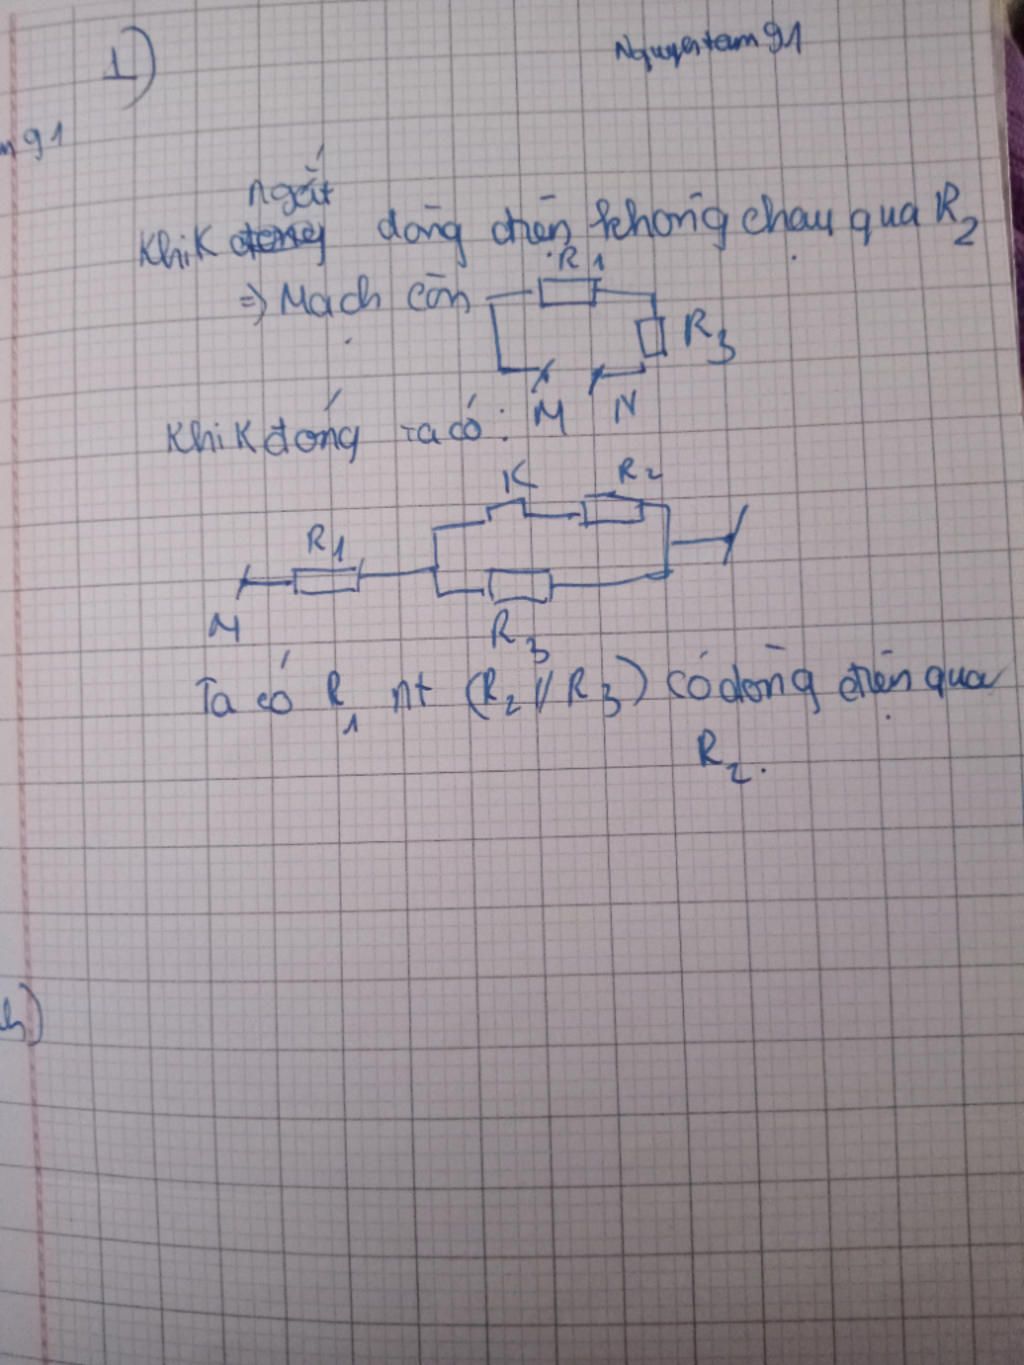 1)
Nguyentam91
m 91
ngắt
Khi K dòng điện không chạy qua R2
⇒ Mạch còn
R1
R3
M N
Khi K đóng ta có:
K R2
R1
M
R3
Ta có R1 nt (R2 // R3) có dòng điện qua
R2.